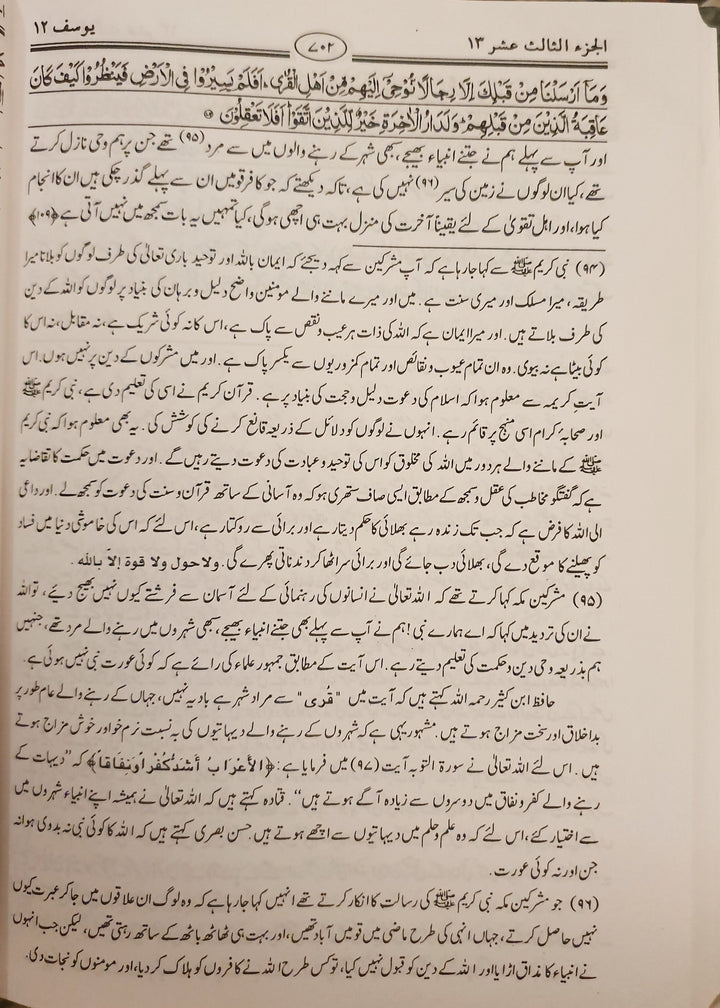 الجزء الثالث عشر ١٣ ٧٠٢ يوسف ١٢
وَمَآ اَرْسَلْنَا مِنْ قَبْلِكَ اِلَّا رِجَالًا نُّوْحِىْٓ اِلَيْهِمْ مِّنْ اَهْلِ الْقُرٰى ؕ اَفَلَمْ يَسِيْرُوْا فِى الْاَرْضِ فَيَنْظُرُوْا كَيْفَ كَانَ
عَاقِبَةُ الَّذِيْنَ مِنْ قَبْلِهِمْ ؕ وَلَدَارُ الْاٰخِرَةِ خَيْرٌ لِّلَّذِيْنَ اتَّقَوْا ؕ اَفَلَا تَعْقِلُوْنَ
اور آپ سے پہلے ہم نے جتنے انبیاء بھیجے، سبھی شہر کے رہنے والوں میں سے مرد (۹۵) تھے جن پر ہم وحی نازل کرتے
تھے، کیا ان لوگوں نے زمین کی سیر (۹۶) نہیں کی ہے، تاکہ دیکھتے کہ جو کافر قومیں ان سے پہلے گذر چکی ہیں ان کا انجام
کیا ہوا، اور اہل تقویٰ کے لئے یقیناً آخرت کی منزل بہت ہی اچھی ہوگی، کیا تمہیں یہ بات سمجھ میں نہیں آتی ہے ﴿۱۰۹﴾
(۹۴) نبی کریم ﷺ سے کہا جارہا ہے کہ آپ مشرکین سے کہہ دیجئے کہ ایمان باللہ اور توحید باری تعالیٰ کی طرف لوگوں کو بلانا میرا
طریقہ، میرا مسلک اور میری سنت ہے۔ میں اور میرے ماننے والے مومنین واضح دلیل و برہان کی بنیاد پر لوگوں کو اللہ کے دین
کی طرف بلاتے ہیں۔ اور میرا ایمان ہے کہ اللہ کی ذات ہر عیب و نقص سے پاک ہے، اس کا نہ کوئی شریک ہے، نہ مقابل، نہ اس کا
کوئی بیٹا ہے نہ بیوی۔ وہ ان تمام عیوب و نقائص اور تمام کمزوریوں سے یکسر پاک ہے۔ اور میں مشرکوں کے دین پر نہیں ہوں۔ اس
آیتِ کریمہ سے معلوم ہوا کہ اسلام کی دعوت دلیل و حجت کی بنیاد پر ہے۔ قرآن کریم نے اسی کی تعلیم دی ہے، نبی کریم ﷺ
اور صحابۂ کرام اسی منہج پر قائم رہے۔ انہوں نے لوگوں کو دلائل کے ذریعہ قانع کرنے کی کوشش کی۔ یہ بھی معلوم ہوا کہ نبی کریم
ﷺ کے ماننے والے ہر دور میں اللہ کی مخلوق کو اس کی توحید و عبادت کی دعوت دیتے رہیں گے۔ اور دعوت میں حکمت کا تقاضا یہ
ہے کہ گفتگو مخاطب کی عقل و سمجھ کے مطابق ایسی صاف ستھری ہو کہ وہ آسانی کے ساتھ قرآن و سنت کی دعوت کو سمجھ لے۔ اور داعی
الی اللہ کا فرض ہے کہ جب تک زندہ رہے بھلائی کا حکم دیتا رہے اور برائی سے روکتا رہے، اس لئے کہ اس کی خاموشی دنیا میں فساد
کو پھیلنے کا موقع دے گی، بھلائی دب جائے گی اور برائی سر اٹھا کر دندناتی پھرے گی۔ ولا حول ولا قوة إلاّ بالله.
(۹۵) مشرکین مکہ کہا کرتے تھے کہ اللہ تعالیٰ نے انسانوں کی رہنمائی کے لئے آسمان سے فرشتے کیوں نہیں بھیج دیئے، تو اللہ
نے ان کی تردید میں کہا کہ اے ہمارے نبی! ہم نے آپ سے پہلے بھی جتنے انبیاء بھیجے، سبھی شہروں میں رہنے والے مرد تھے، جنہیں
ہم بذریعہ وحی دین و حکمت کی تعلیم دیتے رہے۔ اس آیت کے مطابق جمہور علماء کی رائے ہے کہ کوئی عورت نبی نہیں ہوئی ہے۔
حافظ ابن کثیر رحمہ اللہ کہتے ہیں کہ آیت میں "قُریٰ" سے مراد شہر ہے بادیہ نہیں، جہاں کے رہنے والے عام طور پر
بداخلاق اور سخت مزاج ہوتے ہیں۔ مشہور یہی ہے کہ شہروں کے رہنے والے دیہاتیوں کی بہ نسبت نرم خو اور خوش مزاج ہوتے
ہیں۔ اس لئے اللہ تعالیٰ نے سورۃ التوبہ آیت (۹۷) میں فرمایا ہے: ﴿الأَعْرَابُ أَشَدُّ كُفْراً وَنِفَاقاً﴾ کہ "دیہات کے
رہنے والے کفر و نفاق میں دوسروں سے زیادہ آگے ہوتے ہیں"۔ قتادہ کہتے ہیں کہ اللہ تعالیٰ نے ہمیشہ اپنے انبیاء شہروں میں
سے اختیار کئے، اس لئے کہ وہ علم و حلم میں دیہاتیوں سے اچھے ہوتے ہیں۔ حسن بصری کہتے ہیں کہ اللہ کا کوئی نبی نہ بدوی ہوا نہ
جن اور نہ کوئی عورت۔
(۹۶) جو مشرکین مکہ نبی کریم ﷺ کی رسالت کا انکار کرتے تھے انہیں کہا جارہا ہے کہ وہ لوگ ان علاقوں میں جا کر عبرت کیوں
نہیں حاصل کرتے، جہاں انہی کی طرح ماضی میں قومیں آباد تھیں، اور بہت ہی ٹھاٹھ باٹھ کے ساتھ رہتی تھیں، لیکن جب انہوں
نے انبیاء کا مذاق اڑایا اور اللہ کے دین کو قبول نہیں کیا، تو کس طرح اللہ نے کافروں کو ہلاک کر دیا، اور مومنوں کو نجات دی۔